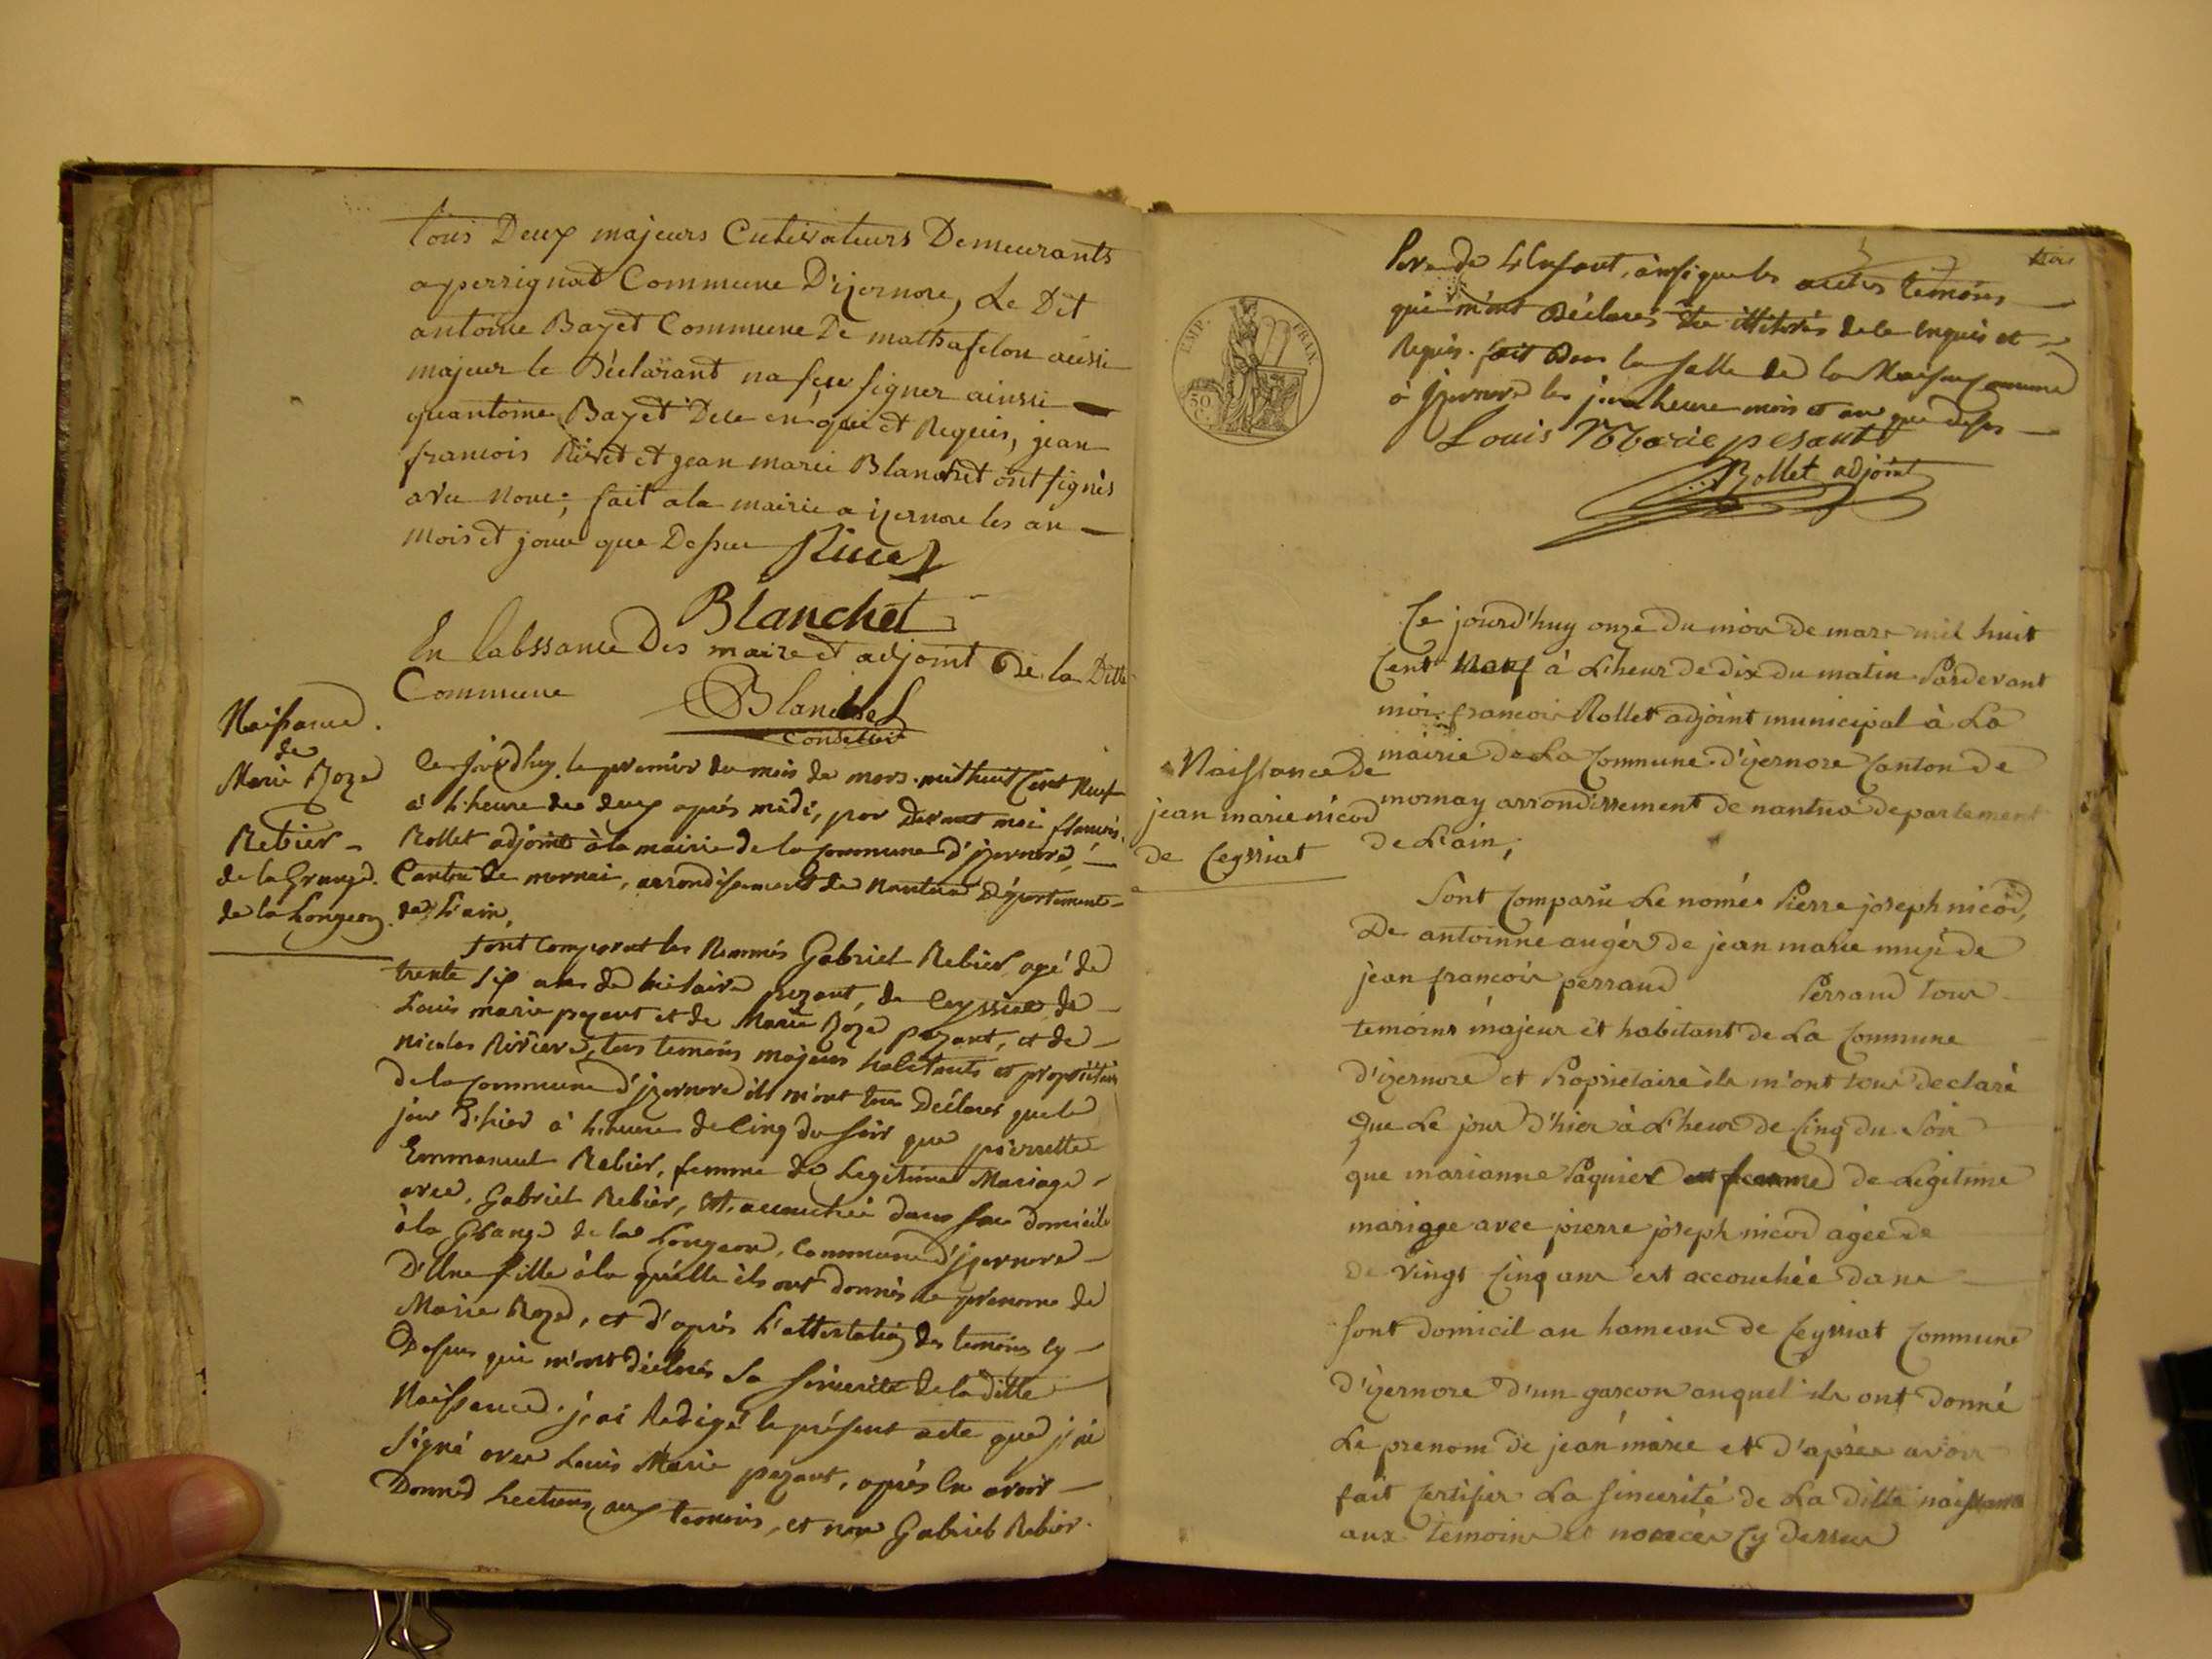 tous Deux majeurs Cutivateurs Demeurants
a perrignat Commune D'izernore, Le Dit
antoine Bayet Commune De mathafelon aussi
majeur le Déclarant na sçu signer ainssi
quantoine Bayet Dece enquie et Requis, jean
francois Rivet et jean marie Blanchet ont signés
avec nouc; fait a la mairie a izernore les an
mois et jour que Dessus Rivet
Blanchet
En labssance Des maire et adjoint De la Ditte
Commune Blanchet
Conseiller
Naissance
de
Marie Roze
Rebier
de la Grange
de la Longeon
Ce jourdhuy le premier du mois de mars mil huit Cent Neuf
à l'heure de deux après midi, par Devant moi francois
Rollet adjoint à la mairie de la Commune d'izernore,
Canton de mornai, arrondissement de Nantua Département
de L'ain,
sont comparut les Nommés Gabriel Rebier agé de
trente six ans de hilaire pezant, de Ceyssiat de
Louis marie pezant et de Marie Roze pezant, et de
nicolas Riviere, tous temoins majeurs habitants et propriétaire
de la Commune d'izernore ils m'ont tous Déclarés que le
jour d'hier à l'heure de Cinq du soir que pierrette
Emmanuel Rebier, femme de Legitime Mariage
avec Gabriel Rebier, est accouchée dans son domicile
à la Grange de la Longeon, Commune d'izernore
D'Une fille à la quelle ils ont donnés le prenome de
Marie Roze, et d'après l'attestation des temoins Cy
Dessus qui m'ont déclarés La sincerité de la ditte
Naissance. j'ai Redigé le présent acte que j'ai
signé avec Louis Marie pezant, après En avoir
Donné Lecture aux temoins, et non Gabriel Rebier
Pere de L'Enfant, ainsi que les autres témoins
qui m'ont Déclarés être illiterés de le Enquis et
Requis. fait Dans la salle de la Maison Commune
à izernore les jour heure mois et an que dessus
Louis Marie pesant
Rollet adjoint
EMP. FRAN.
50 C.
Ce jourd'huy onze du mois de mars mil huit
Cent Neuf à L'heur de dix du matin Pardevant
moi francois Rollet adjoint municipal à La
Naissance de
jean marie nicod
de Ceyssiat
mairie de La Commune d'izernore Canton de
mornay arrondissement de nantua departement
de L'ain,
Sont Comparu Le nomée Pierre joseph nicod,
De antoinne augér de jean marie de
jean francois perraud Perraud tous
temoins majeur et habitant de La Commune
d'izernore et Proprietaire ils m'ont tous declaré
Que Le jour d'hier à L'heur de Cinq du Soir
que marianne Paquier femme de Legitime
mariage avec pierre joseph nicod agée de
de vingt Cinq ans est accouchée dans
sont domicil au hameau de Ceyssiat Commune
d'izernore d'un garcon auquel ils ont donné
Le prenom de jean marie et d'après avoir
fait Certifier La sincerité de La ditte naissance
aux temoins et Cy dessus